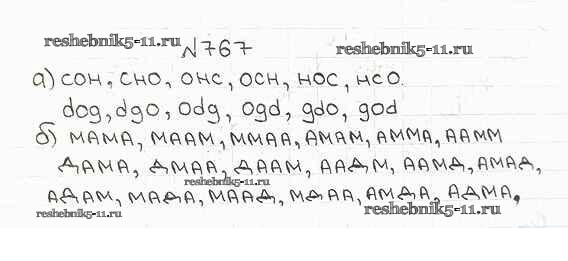 reshebnik5-11.ru
№767
reshebnik5-11.ru
а) сон, сно, онс, осн, нос, нсо
dog, dgo, odg, ogd, gdo, god
б) МАМА, МААМ, ММАА, АМАМ, АММА, ААММ
ДАМА, ДМАА, ДААМ, ААДМ, ААМД, АМАД,
reshebnik5-11.ru
АДАМ, МАДА, МААД, МДАА, АМДА, АДМА,
reshebnik5-11.ru
reshebnik5-11.ru